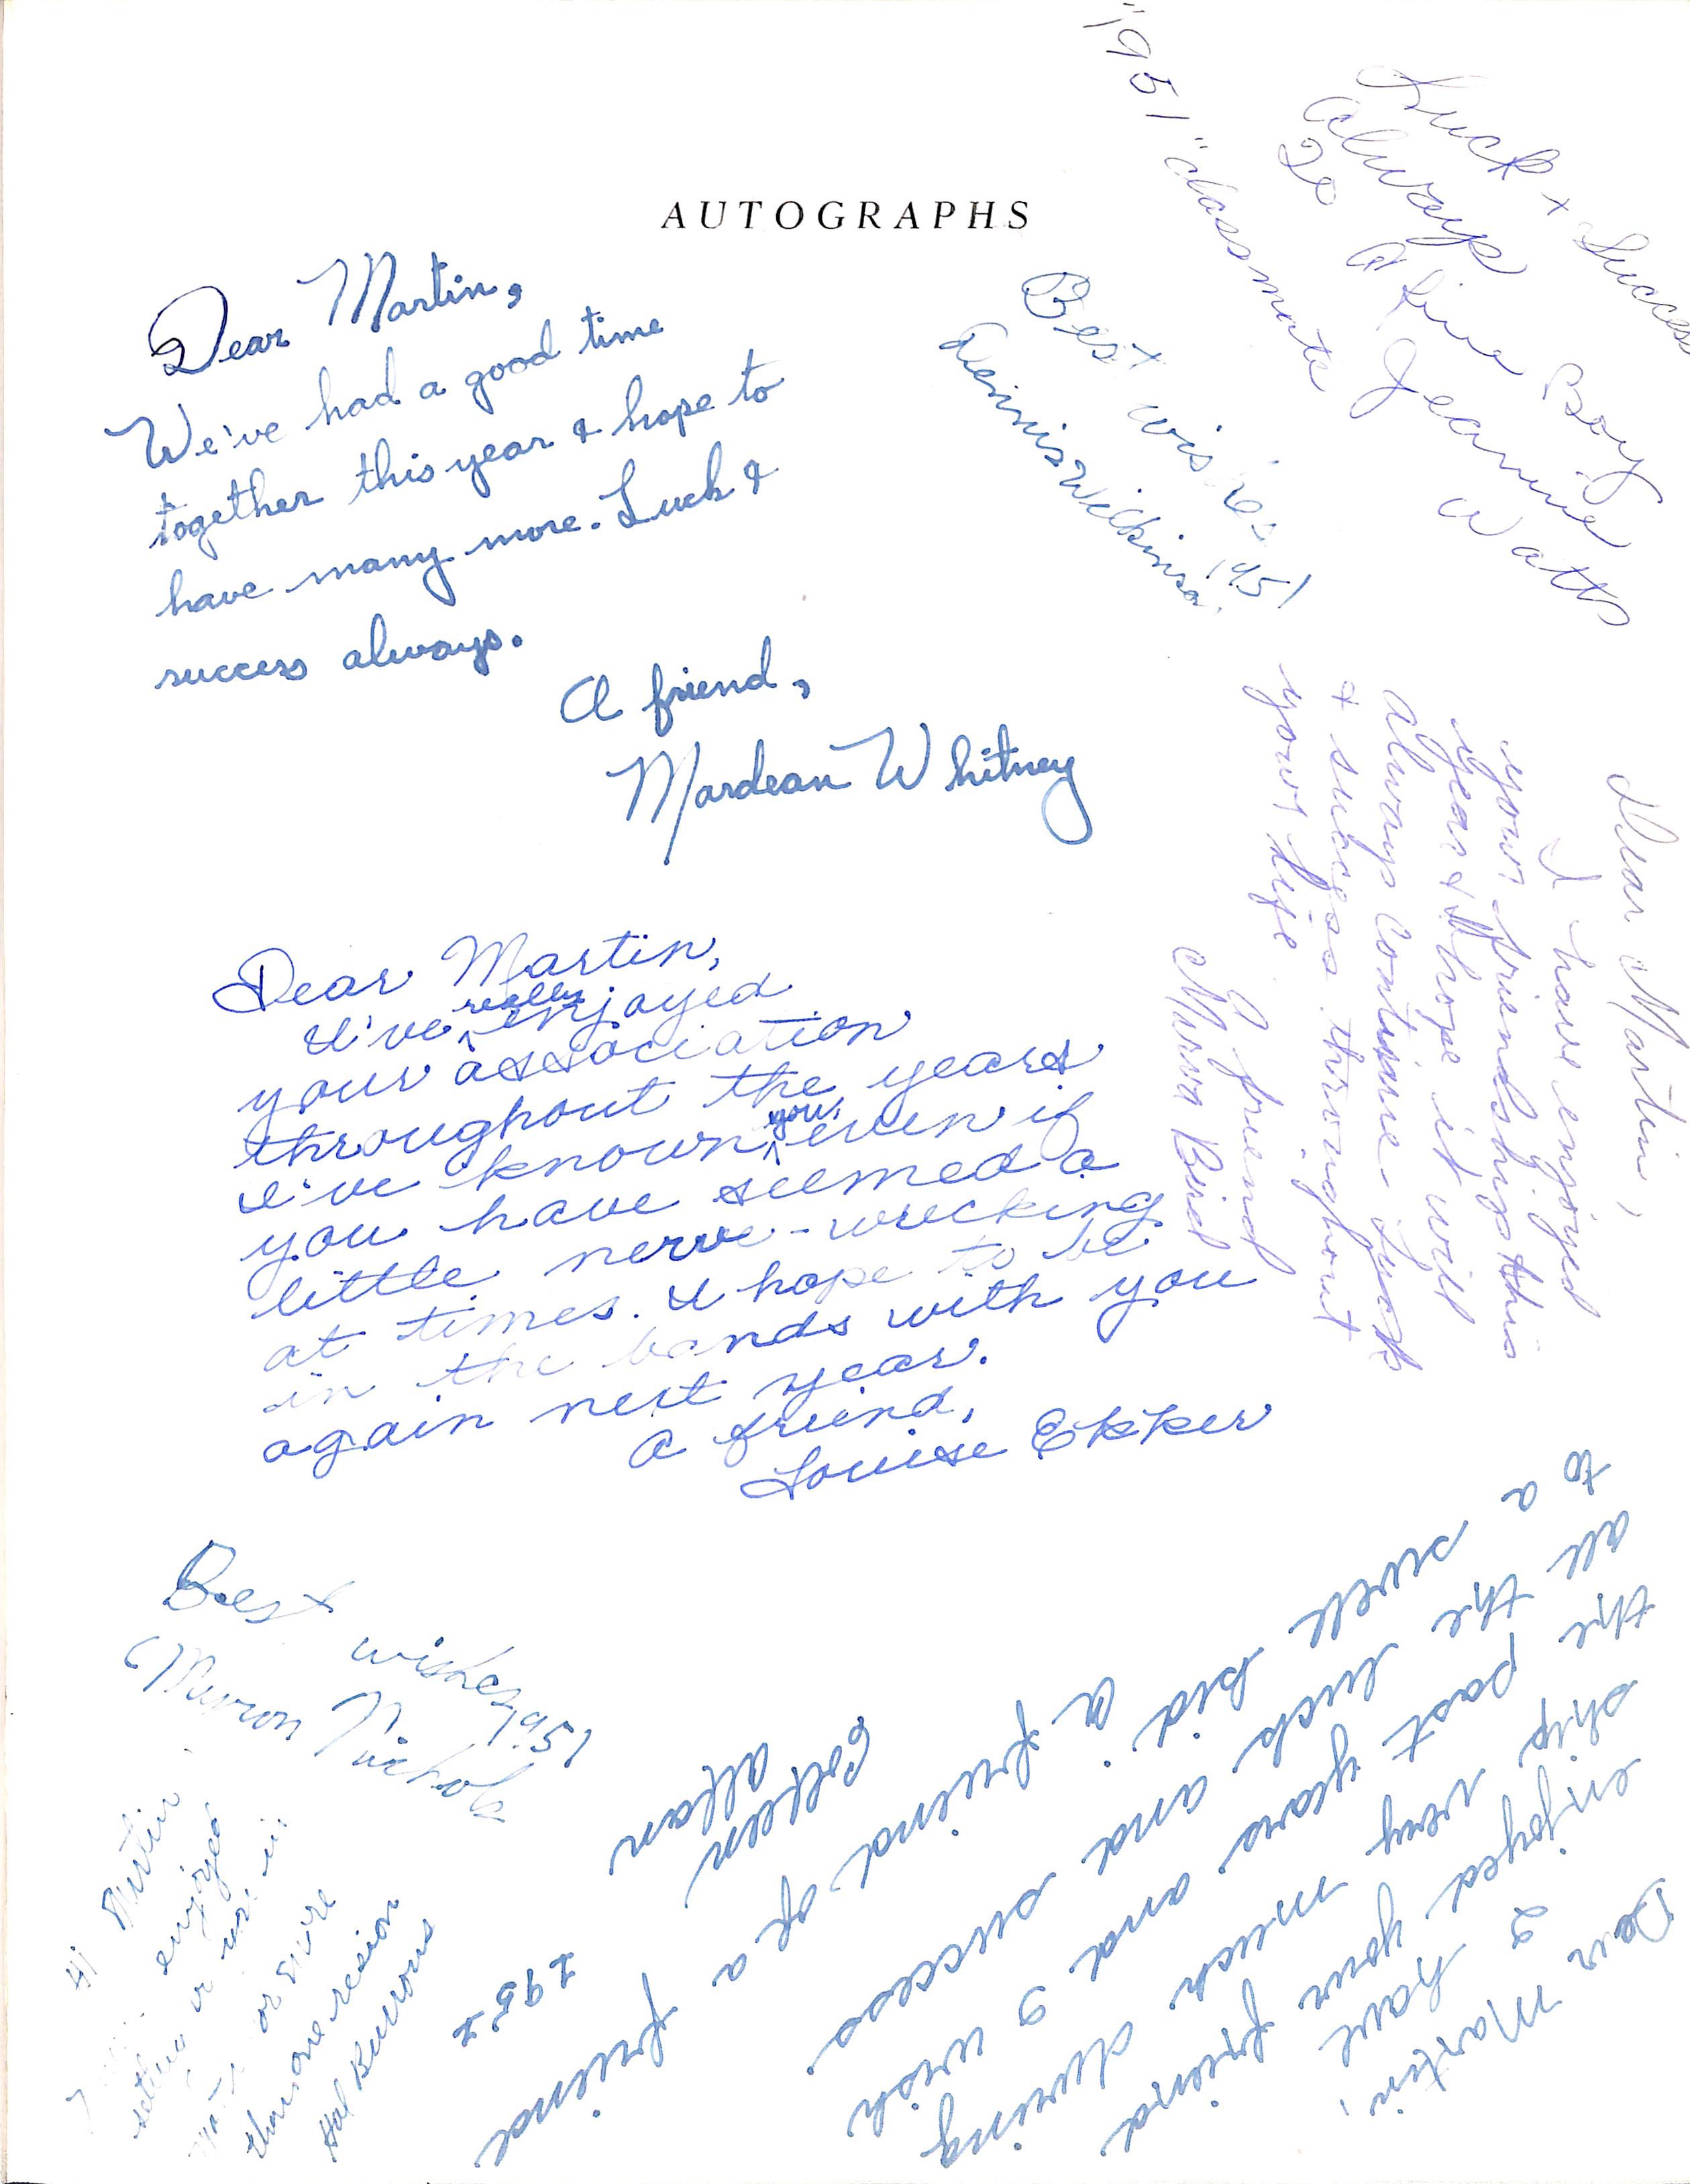 AUTOGRAPHS
Dear Martin,
We've had a good time
together this year & hope to
have many more. Luck &
success always.
A friend,
Mardean Whitney
Best wishes 1951
Dennis Wilkinson
Luck & Success
Always
To A Fine Boy
Jeannine Watts
"1951" classmate
Dear Martin,
I have enjoyed
your friendship this
year & hope it will
always continue. Luck
& success throughout
your life
A friend
Marva Bird
Dear Martin,
I've really enjoyed
your association
throughout the years
I've known you, even if
you have seemed a
little nerve-wrecking
at times. I hope to be
in the bands with you
again next year.
A friend,
Louise Ekker
Best wishes 1951
Myron Nichols
Hi Martin
enjoyed
in
or more
than one reason
Hal Burrows
Dear Martin,
I have
enjoyed your friend
ship very much during
the past years and I wish
all the luck and success
to a swell kid
A friend of a friend
Colleen
Allan
1951